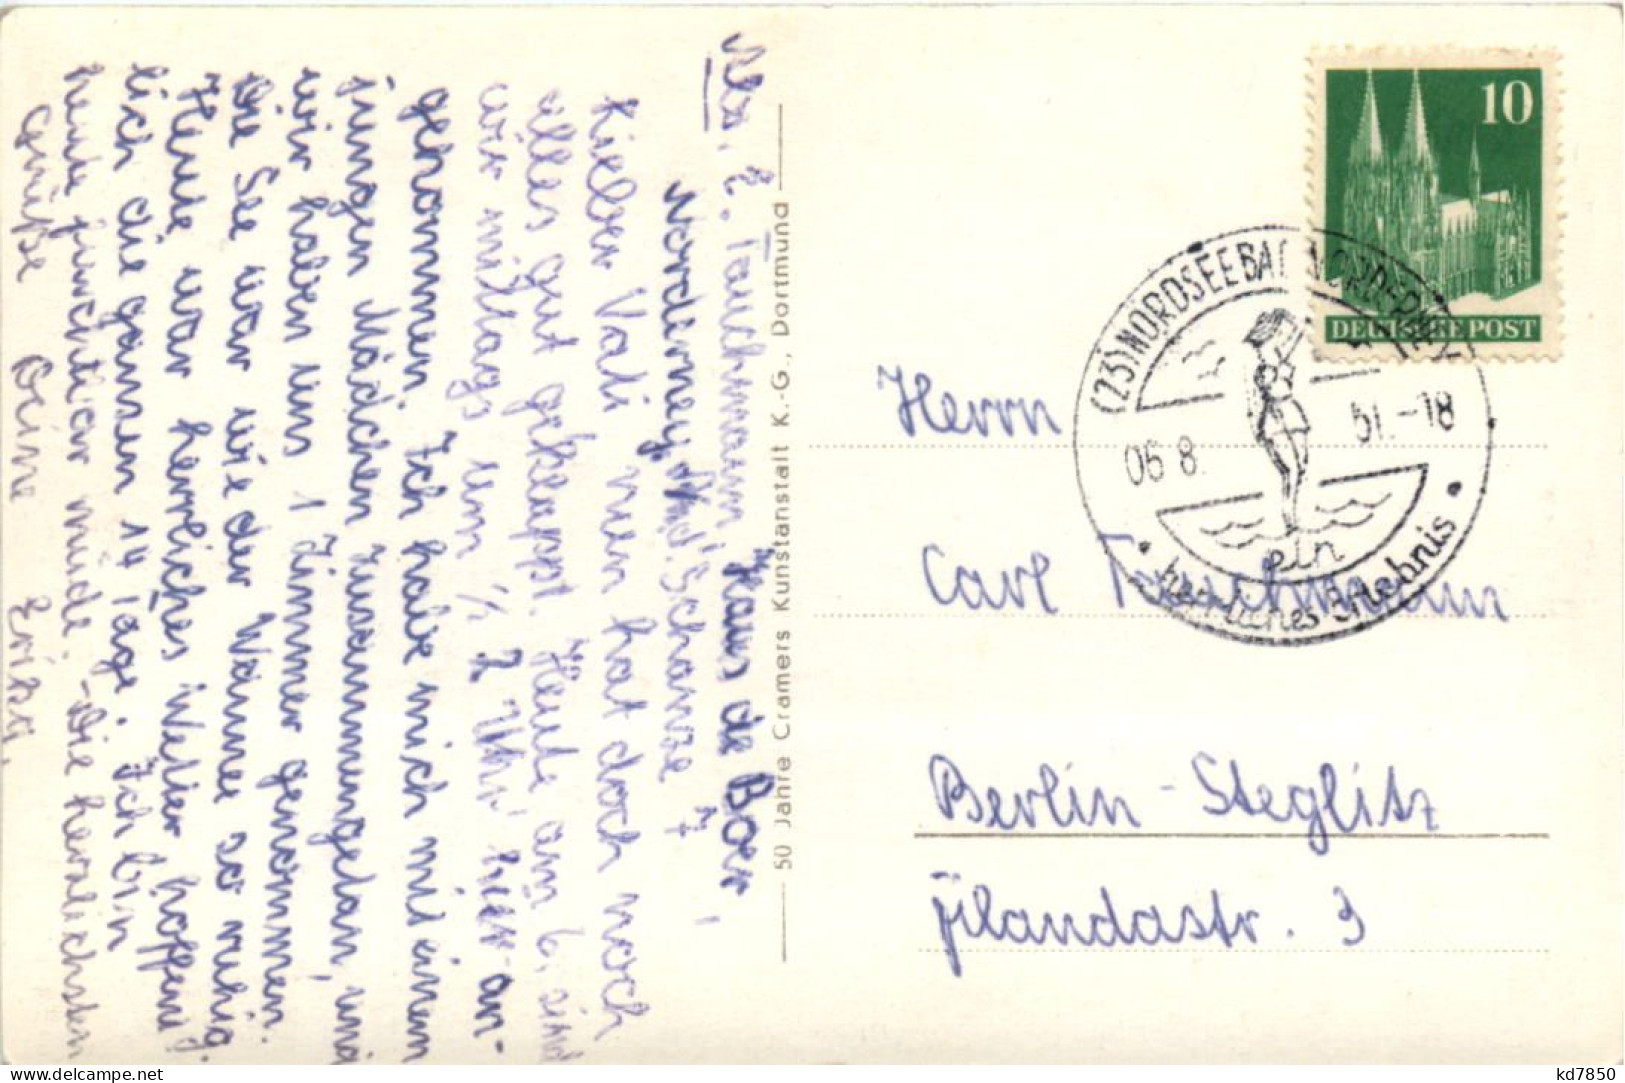 Abs. E. Tauchmann, Haus de Boer,
Norderney, Süd. Schanze 7
Lieber Vati nun hat doch noch
alles gut geklappt. Heute am 6. sind
wir mittags um ½ 2 Uhr hier an-
genommen. Ich habe mich mit einem
jungen Mädchen zusammengetan, und
wir haben uns 1 Zimmer genommen.
Die See war wie der Wanne so ruhig.
Heute war herrliches Wetter hoffent-
lich die ganzen 14 Tage. Ich bin
heute furchtbar müde. - Die herzlichsten
Grüße Deine Erika.
50 Jahre Cramers Kunstanstalt K.-G., Dortmund
10
DEUTSCHE POST
(23) NORDSEEBAD NORDERNEY
06.8. 51.-18
ein
herrliches Erlebnis
Herrn
Carl Tauchmann
Berlin-Steglitz
Filandastr. 3
kd7850